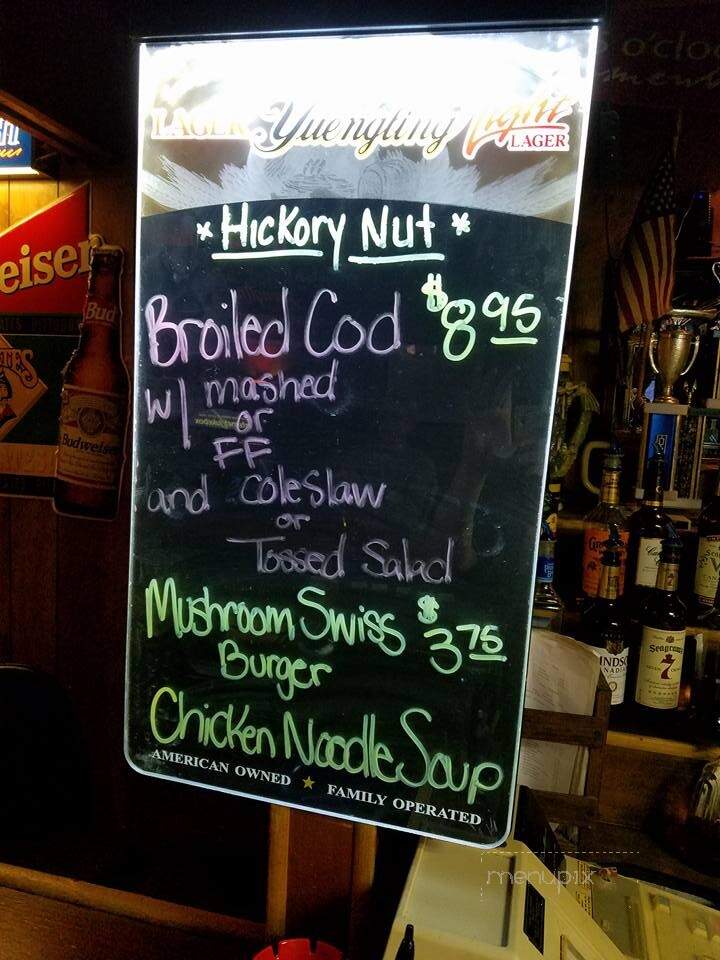 LAGER Yuengling Light
LAGER
* Hickory Nut *
Broiled Cod $8 95
w/ mashed
or
FF
and coleslaw
or
Tossed Salad
Mushroom Swiss $3 75
Burger
Chicken Noodle Soup
AMERICAN OWNED ★ FAMILY OPERATED
eiser
Bud
Budweiser
o'clo
Seagram's
7
menupix